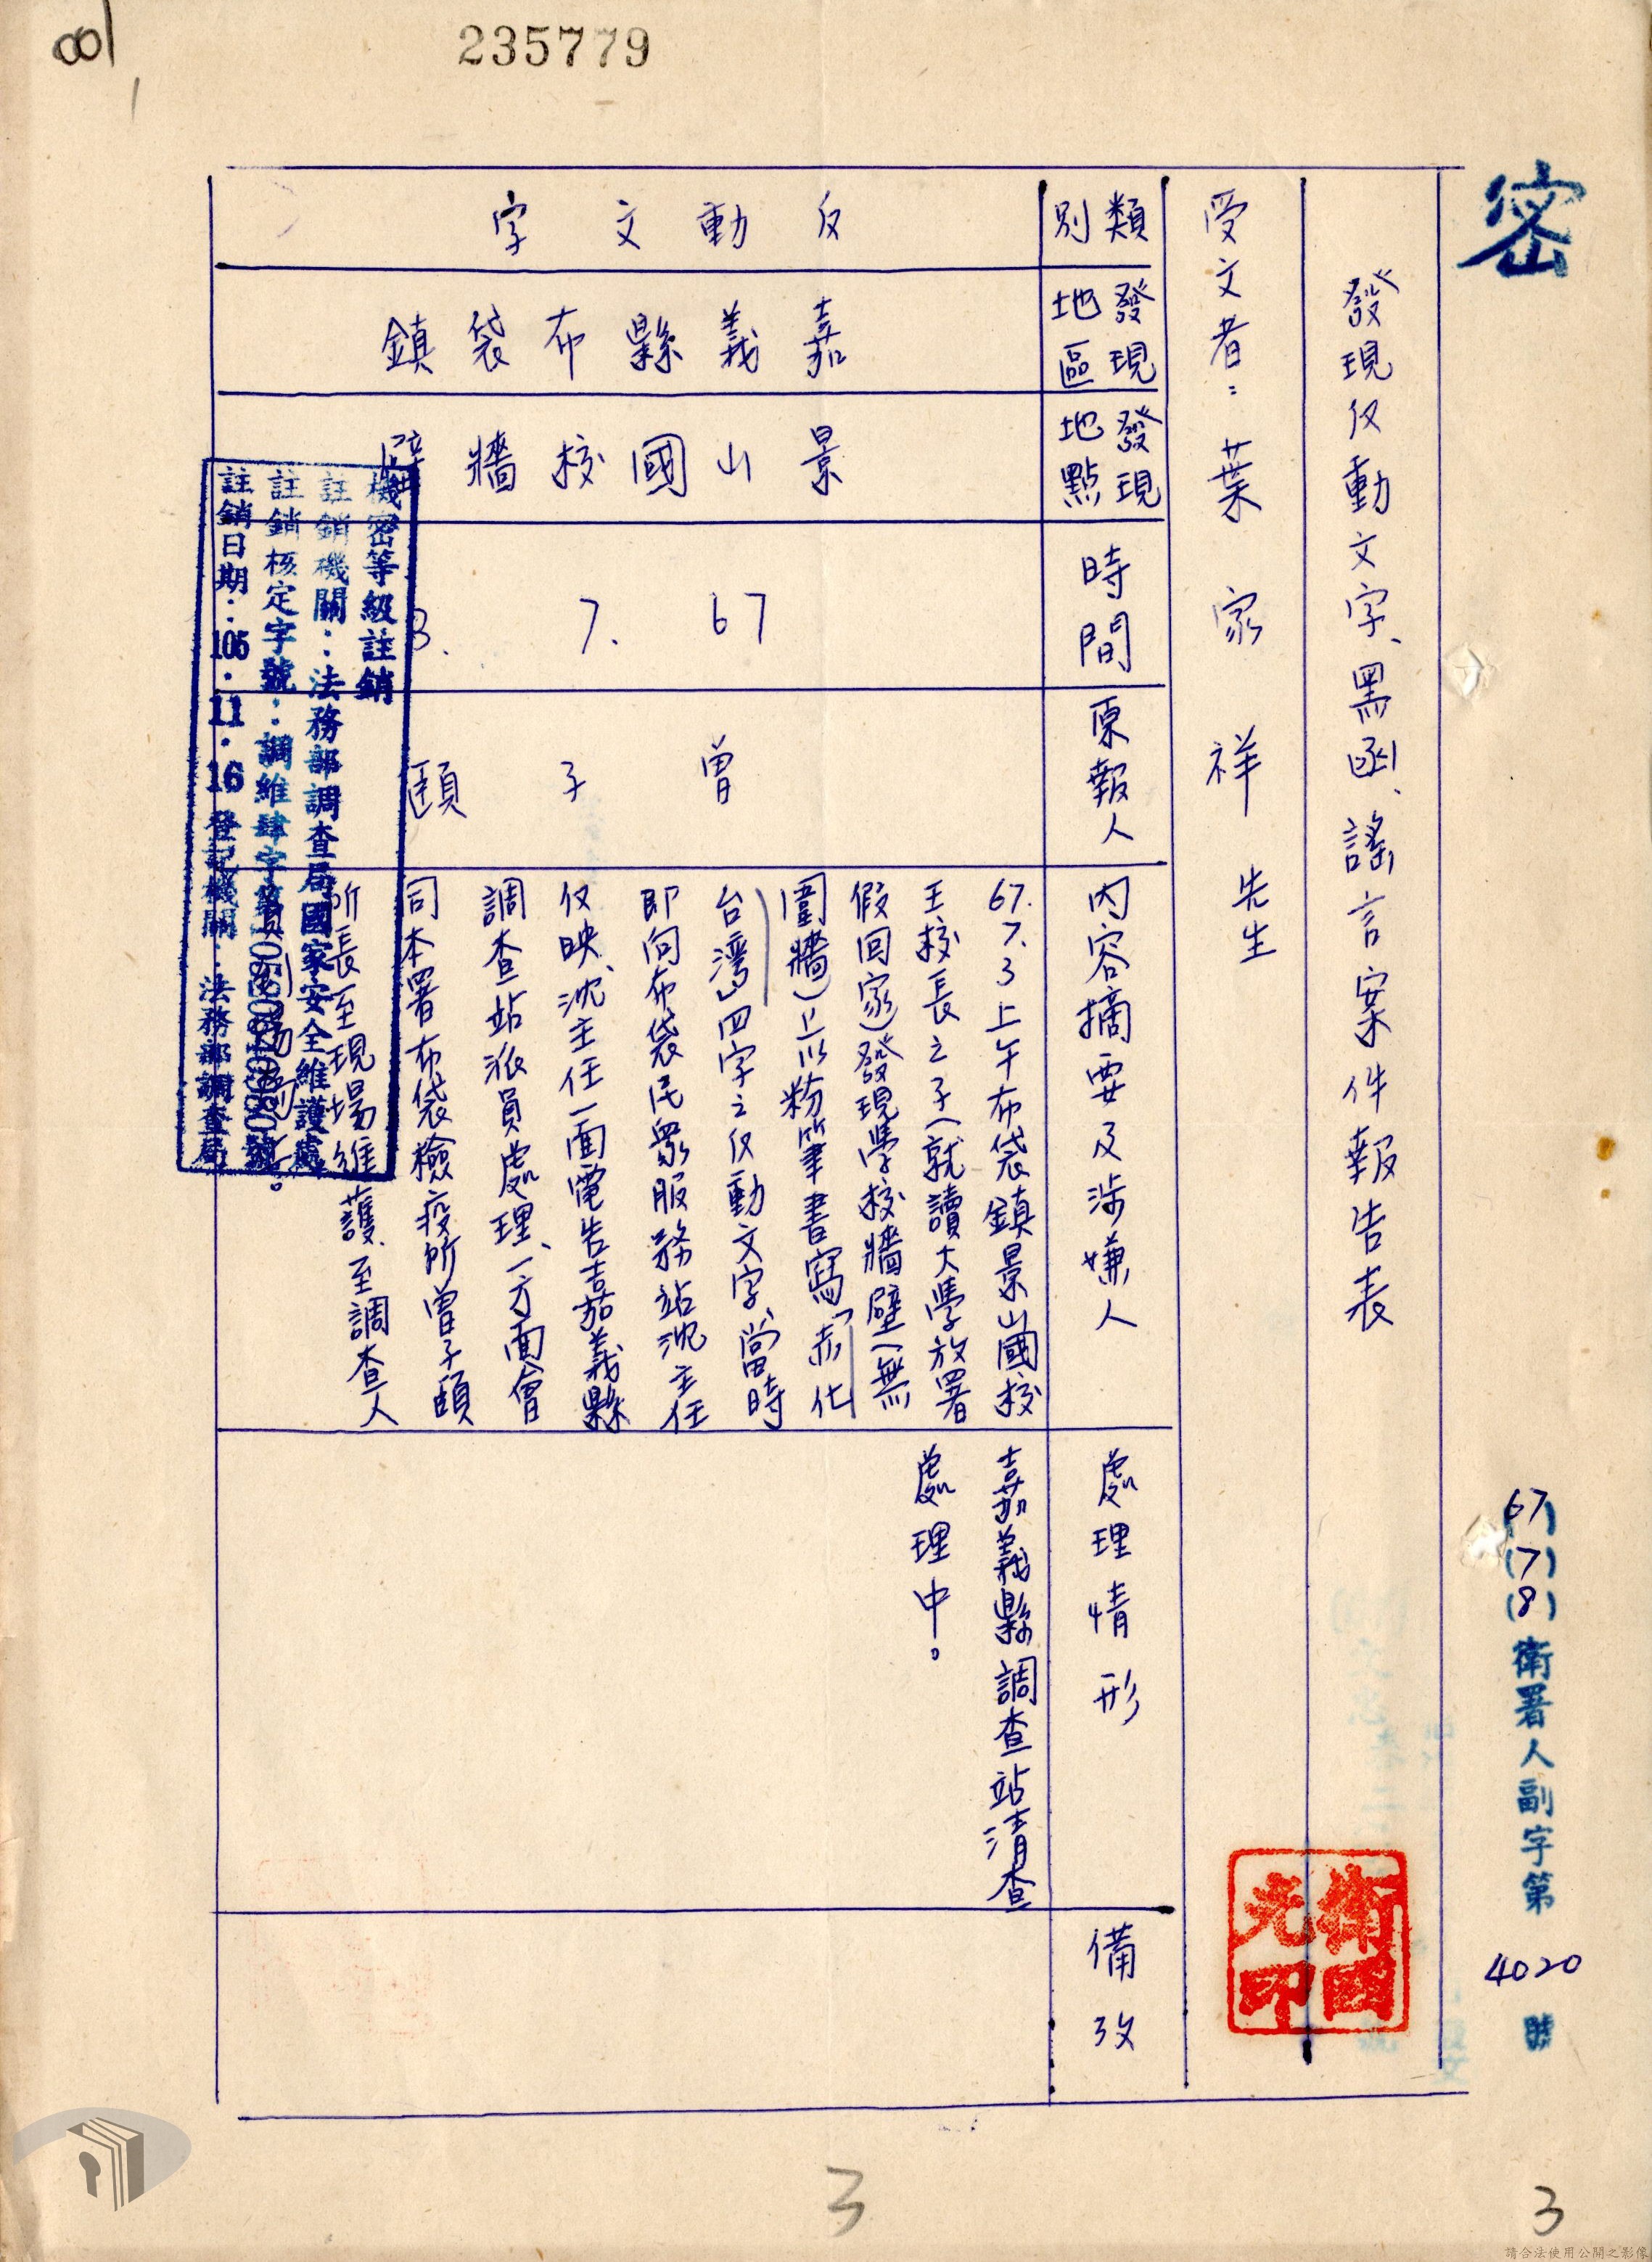 001
235779
密
67
(7)
(8)
衛署人副字第 4020 號
發現反動文字、黑函、謠言案件報告表
受文者：葉家祥先生
類別
反動文字
發現地區
嘉義縣布袋鎮
發現地點
景山國校牆壁
時間
67 7. 3.
原報人
曾子頤
內容摘要及涉嫌人
67.7.3上午布袋鎮景山國校
王校長之子(就讀大學放署
假回家)發現學校牆壁(無
圍牆)上以粉筆書寫「赤化
台灣」四字之反動文字、當時
即向布袋民眾服務站沈主任
反映、沈主任一面電告嘉義縣
調查站派員處理、一方面會
同本署布袋檢疫所曾子頤
所長至現場維護、至調查人
員
處理情形
嘉義縣調查站清查
處理中。
備攷
衛國光印
機密等級註銷
註銷機關：法務部調查局國家安全維護處
註銷核定字號：調維肆字第 號
註銷日期：105.11.16 登記機關：法務部調查局
3
3
請合法使用公開之影像